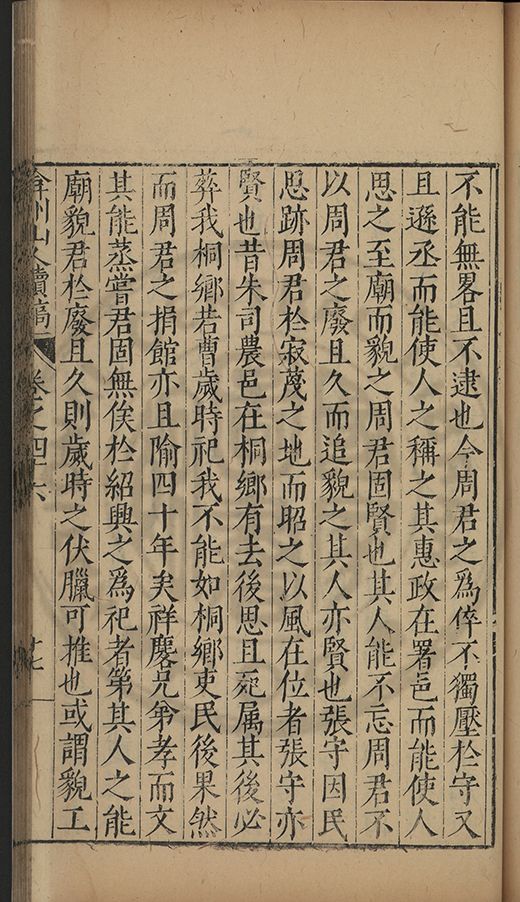 不能無畧且不逮也今周君之為倅不獨壓於守又
且遜丞而能使人之稱之其惠政在署邑而能使人
思之至廟而貌之周君固賢也其人能不忘周君不
以周君之廢且久而追貌之其人亦賢也張守因民
思跡周君於寂蔑之地而昭之以風在位者張守亦
賢也昔朱司農邑在桐鄉有去後思且死属其後必
葬我桐鄉若曹歲時祀我不能如桐鄉吏民後果然
而周君之捐館亦且隃四十年矣祥麐兄弟孝而文
其能蒸嘗君固無俟於紹興之為祀者第其人之能
廟貌君於廢且久則歲時之伏臘可推也或謂貌工
弇州山人續稿 卷之四十六 十七